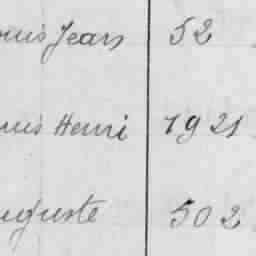 ouis Jean 52
ouis Henri 1921
uguste 502